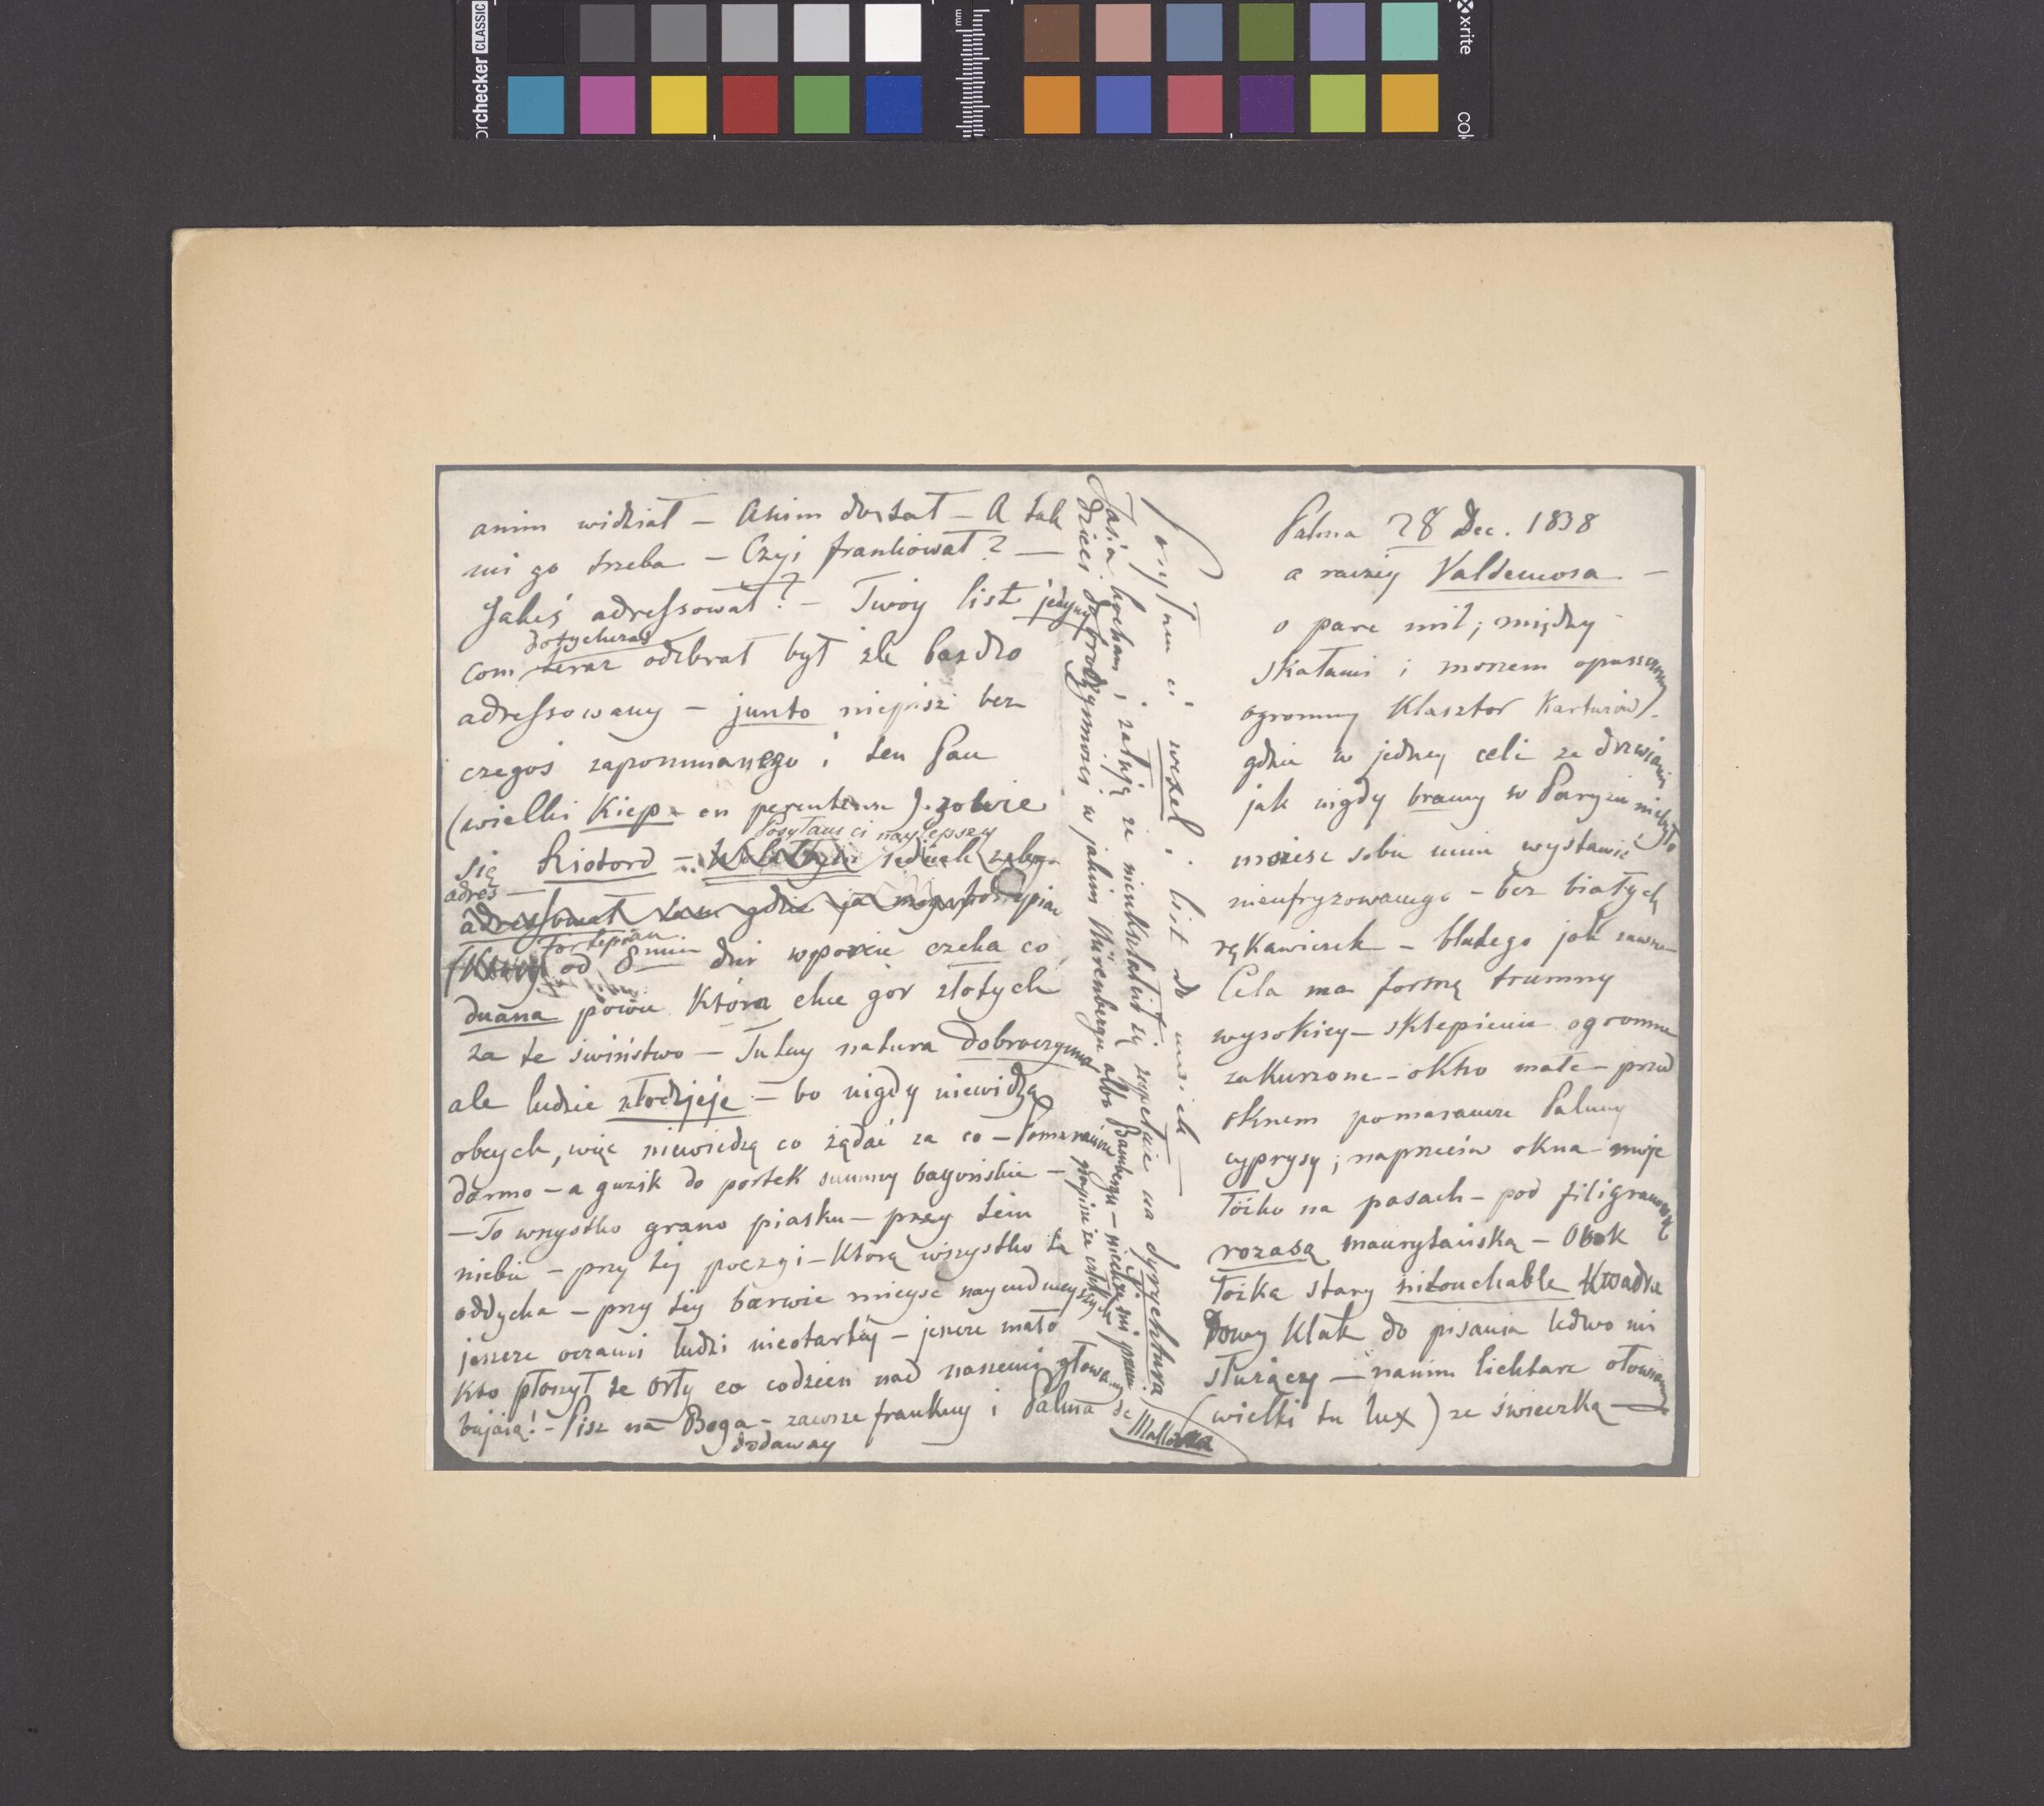 Palma 28 Dec. 1838
a raczey Valdemosa. —
o parę mil; między
skałami i morzem opuszczony
ogromny Klasztor Kartuzów.
gdzie w jedney celi ze drzwiami
jak nigdy bramy w Paryżu niebyło
możesz sobie mnie wystawić
nieufryzowanego – bez białych
rękawiczek – bladego jak zawsze
Cela ma formę trumny
wysokiey – sklepienie ogromne
zakurzone – okno małe – przed
oknem pomarańcze Palmy
cyprysy; naprzeciw okna – moje
łóżko na pasach – pod filigranową
rozasą maurytańską – Obok
łóżka stary nitouchable kwadra
towy klak do pisania ledwo mi
służący – nanim lichtarz ołowiany
(wielki tu lux) ze świeczką —
anim widział – Anim dostał – A tak
mi go trzeba – Czyś frankował? —
Jakeś adressował? – Twoy list jedyny
dotychczas
com teraz odebrał był źle bardzo
adressowany – junto niepisz bez
czegoś zapomnianego i ten Pan
(wielki Kiep – en parentense) zowie
Posyłam ci naylepszy
się Riotord – jednak
adres —
adressował tam gdzie ja mogę
fortepian
od 8miu dni wporcie czeka co
duana powie która chce gór złotych
za te świństwo – Tutay natura dobroczynna
ale ludzie złodzjeje – bo nigdy niewidzą
obcych, więc niewiedzą co żądać za co – Pomarańcze
darmo – a guzik do portek summy bajońskie –
— To wszystko grano piasku – przy tem
niebie – przy tej poezyi – którą wszystko tu
oddycha – przy tey barwie mieysc naycudnieyszych
jeszcze oczami ludzi nieotartéy – jeszcze mało
kto płoszył te orły co codzień nad naszemi głowami
bujają! – Pisz na Boga – zawsze frankuy i Palma de
dodaway
Mallorca
Posyłam ci wexel i list do moich —
Jasia kocham i żałuję że nieukształcił się zupełnie na dyrektura
dzieci dobroczynności w jakim Nürenbergu albo Bambergu – niechże mi